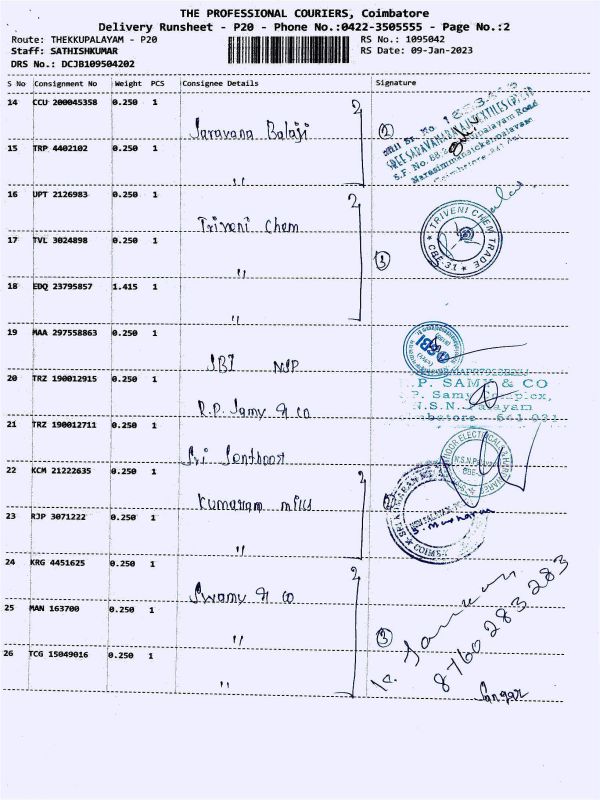 THE PROFESSIONAL COURIERS, Coimbatore
Delivery Runsheet - P20 - Phone No.:0422-3505555 - Page No.:2
Route: THEKKUPALAYAM - P20 RS No.: 1095042
Staff: SATHISHKUMAR RS Date: 09-Jan-2023
DRS No.: DCJB109504202
S No Consignment No Weight PCS Consignee Details Signature
14 CCU 200045358 0.250 1 Saravana Balaji
15 TRP 4402102 0.250 1 "
16 UPT 2126983 0.250 1 Triveni Chem
17 TVL 3024898 0.250 1 "
18 EDQ 23795857 1.415 1 "
19 MAA 297558863 0.250 1 SBI NJP
20 TRZ 190012915 0.250 1 R.P. Samy & Co
21 TRZ 190012711 0.250 1 Sri Senthoor
22 KCM 21222635 0.250 1 Kumaram mills
23 RJP 3071222 0.250 1 "
24 KRG 4451625 0.250 1 Swamy & Co
25 MAN 163700 0.250 1 "
26 TCG 15049016 0.250 1 "
2
TRIVENI CHEM TRADE
CBE-31
3
SBI
P. SAMY & CO
P. Samy Complex,
N.S.N. Palayam
2
COIMB
3
8760283283
Sangar